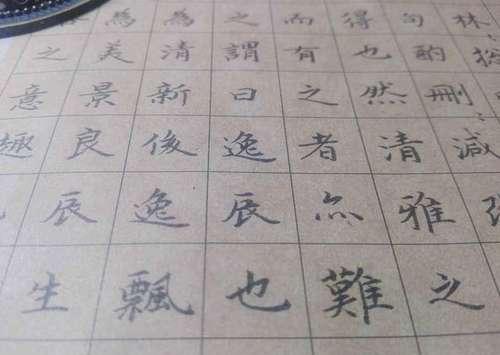 林
句酌刪減
得也然清雅之
而有之者亦難
之謂曰逸辰也
為清新俊逸飄
為美景良辰生
之意趣